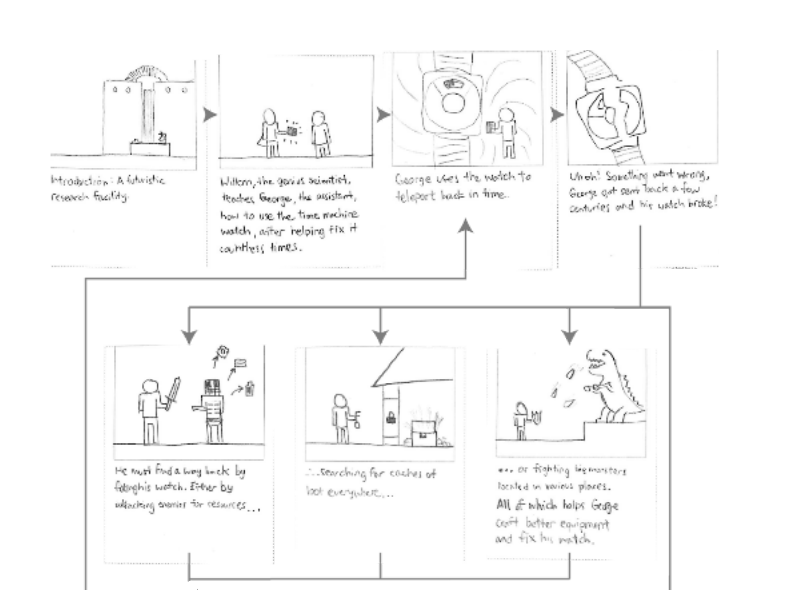 Introduction: A futuristic
research facility.
Willem, the genius scientist,
teaches George, the assistant,
how to use the time machine
watch, after helping fix it
countless times.
George uses the watch to
teleport back in time.
Uh oh! Something went wrong,
George got sent back a few
centuries and his watch broke!
He must find a way back by
his watch. Either by
attacking enemies for resources...
...searching for caches of
loot everywhere...
... or fighting big monsters
located in various places.
All of which helps George
craft better equipment
and fix his watch.